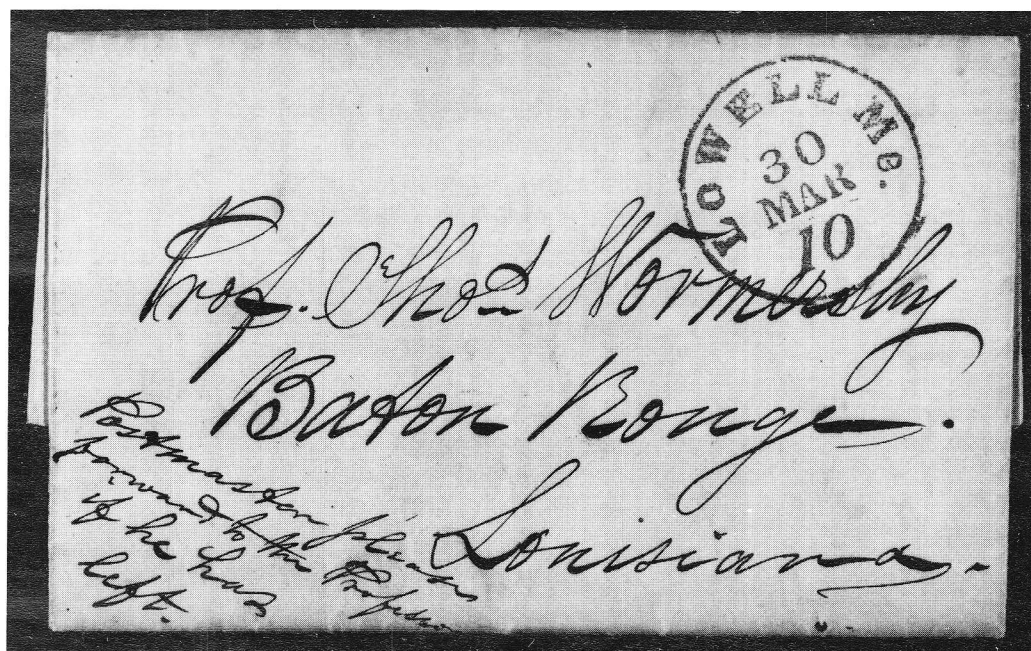 LOWELL Me.
30
MAR
10
Prof. Thos Wormersby
Baton Rouge.
Louisiana.
Postmaster please
forward to the Professor
if he has
left.